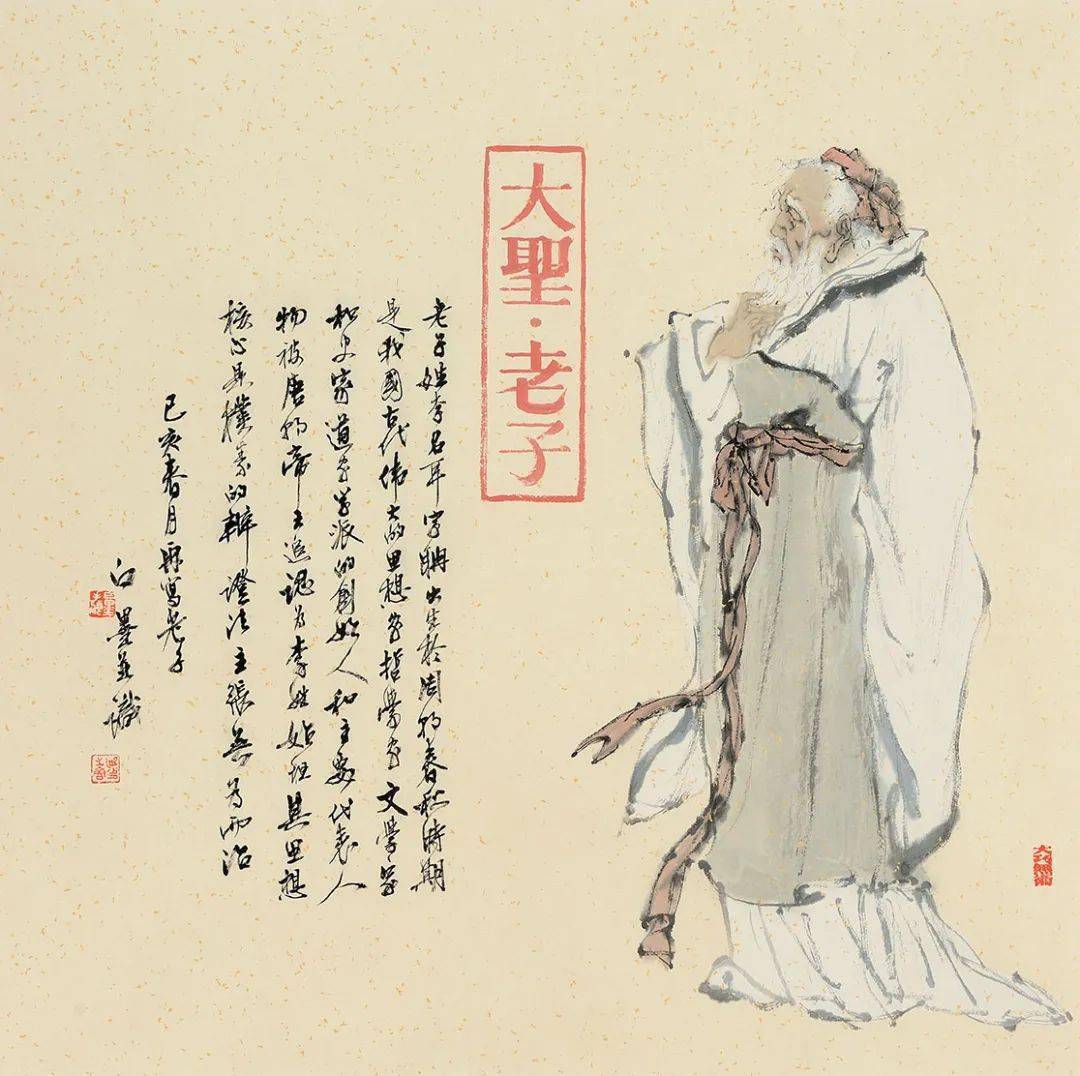 大聖·老子
老子姓李名耳字聃出生於周朝春秋時期
是我國古代伟大的思想家哲學家文學家
和史家道家学派的創始人和主要代表人
物被唐朝帝王追認为李姓始祖其思想
核心是樸素的辯證法主張無为而治
己亥春月再寫老子
白墨並識